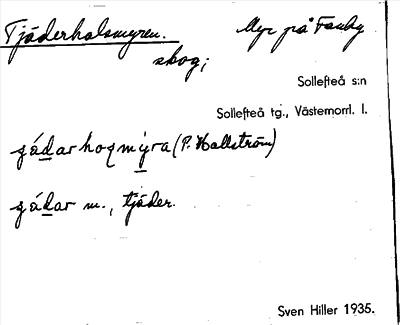 Tjäderholsmyren. Myr på Fanby
skog;
Sollefteå s:n
Sollefteå tg., Västernorrl. l.
(P. Hallström)
m., tjäder.
Sven Hiller 1935.